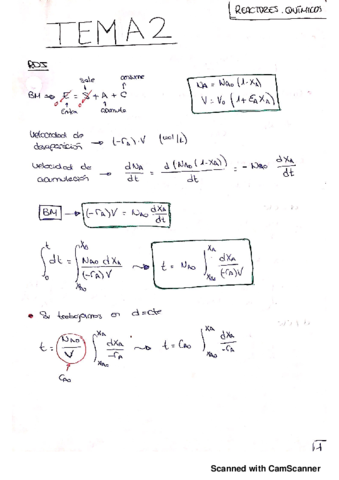 REACTORES QUÍMICOS
TEMA 2
sale consume
BM → E = S + A + C
Entra acumula
N_A = N_A0 (1 - X_A)
V = V_0 (1 + ε_A X_A)
Velocidad de desaparición → (-r_A) · V
Velocidad de acumulación → dN_A/dt = d(N_A0 (1 - X_A))/dt = - N_A0 dX_A/dt
BM → (-r_A) V = N_A0 dX_A/dt
∫_0^t dt = ∫_{X_A0}^{X_A} N_A0 dX_A/(-r_A) V ⟿ t = N_A0 ∫_{X_A0}^{X_A} dX_A/(-r_A) V
• Si trabajamos en d = cte
t = N_A0/V ∫_{X_A0}^{X_A} dX_A/-r_A ⟿ t = C_A0 ∫_{X_A0}^{X_A} dX_A/-r_A
C_A0
Scanned with CamScanner